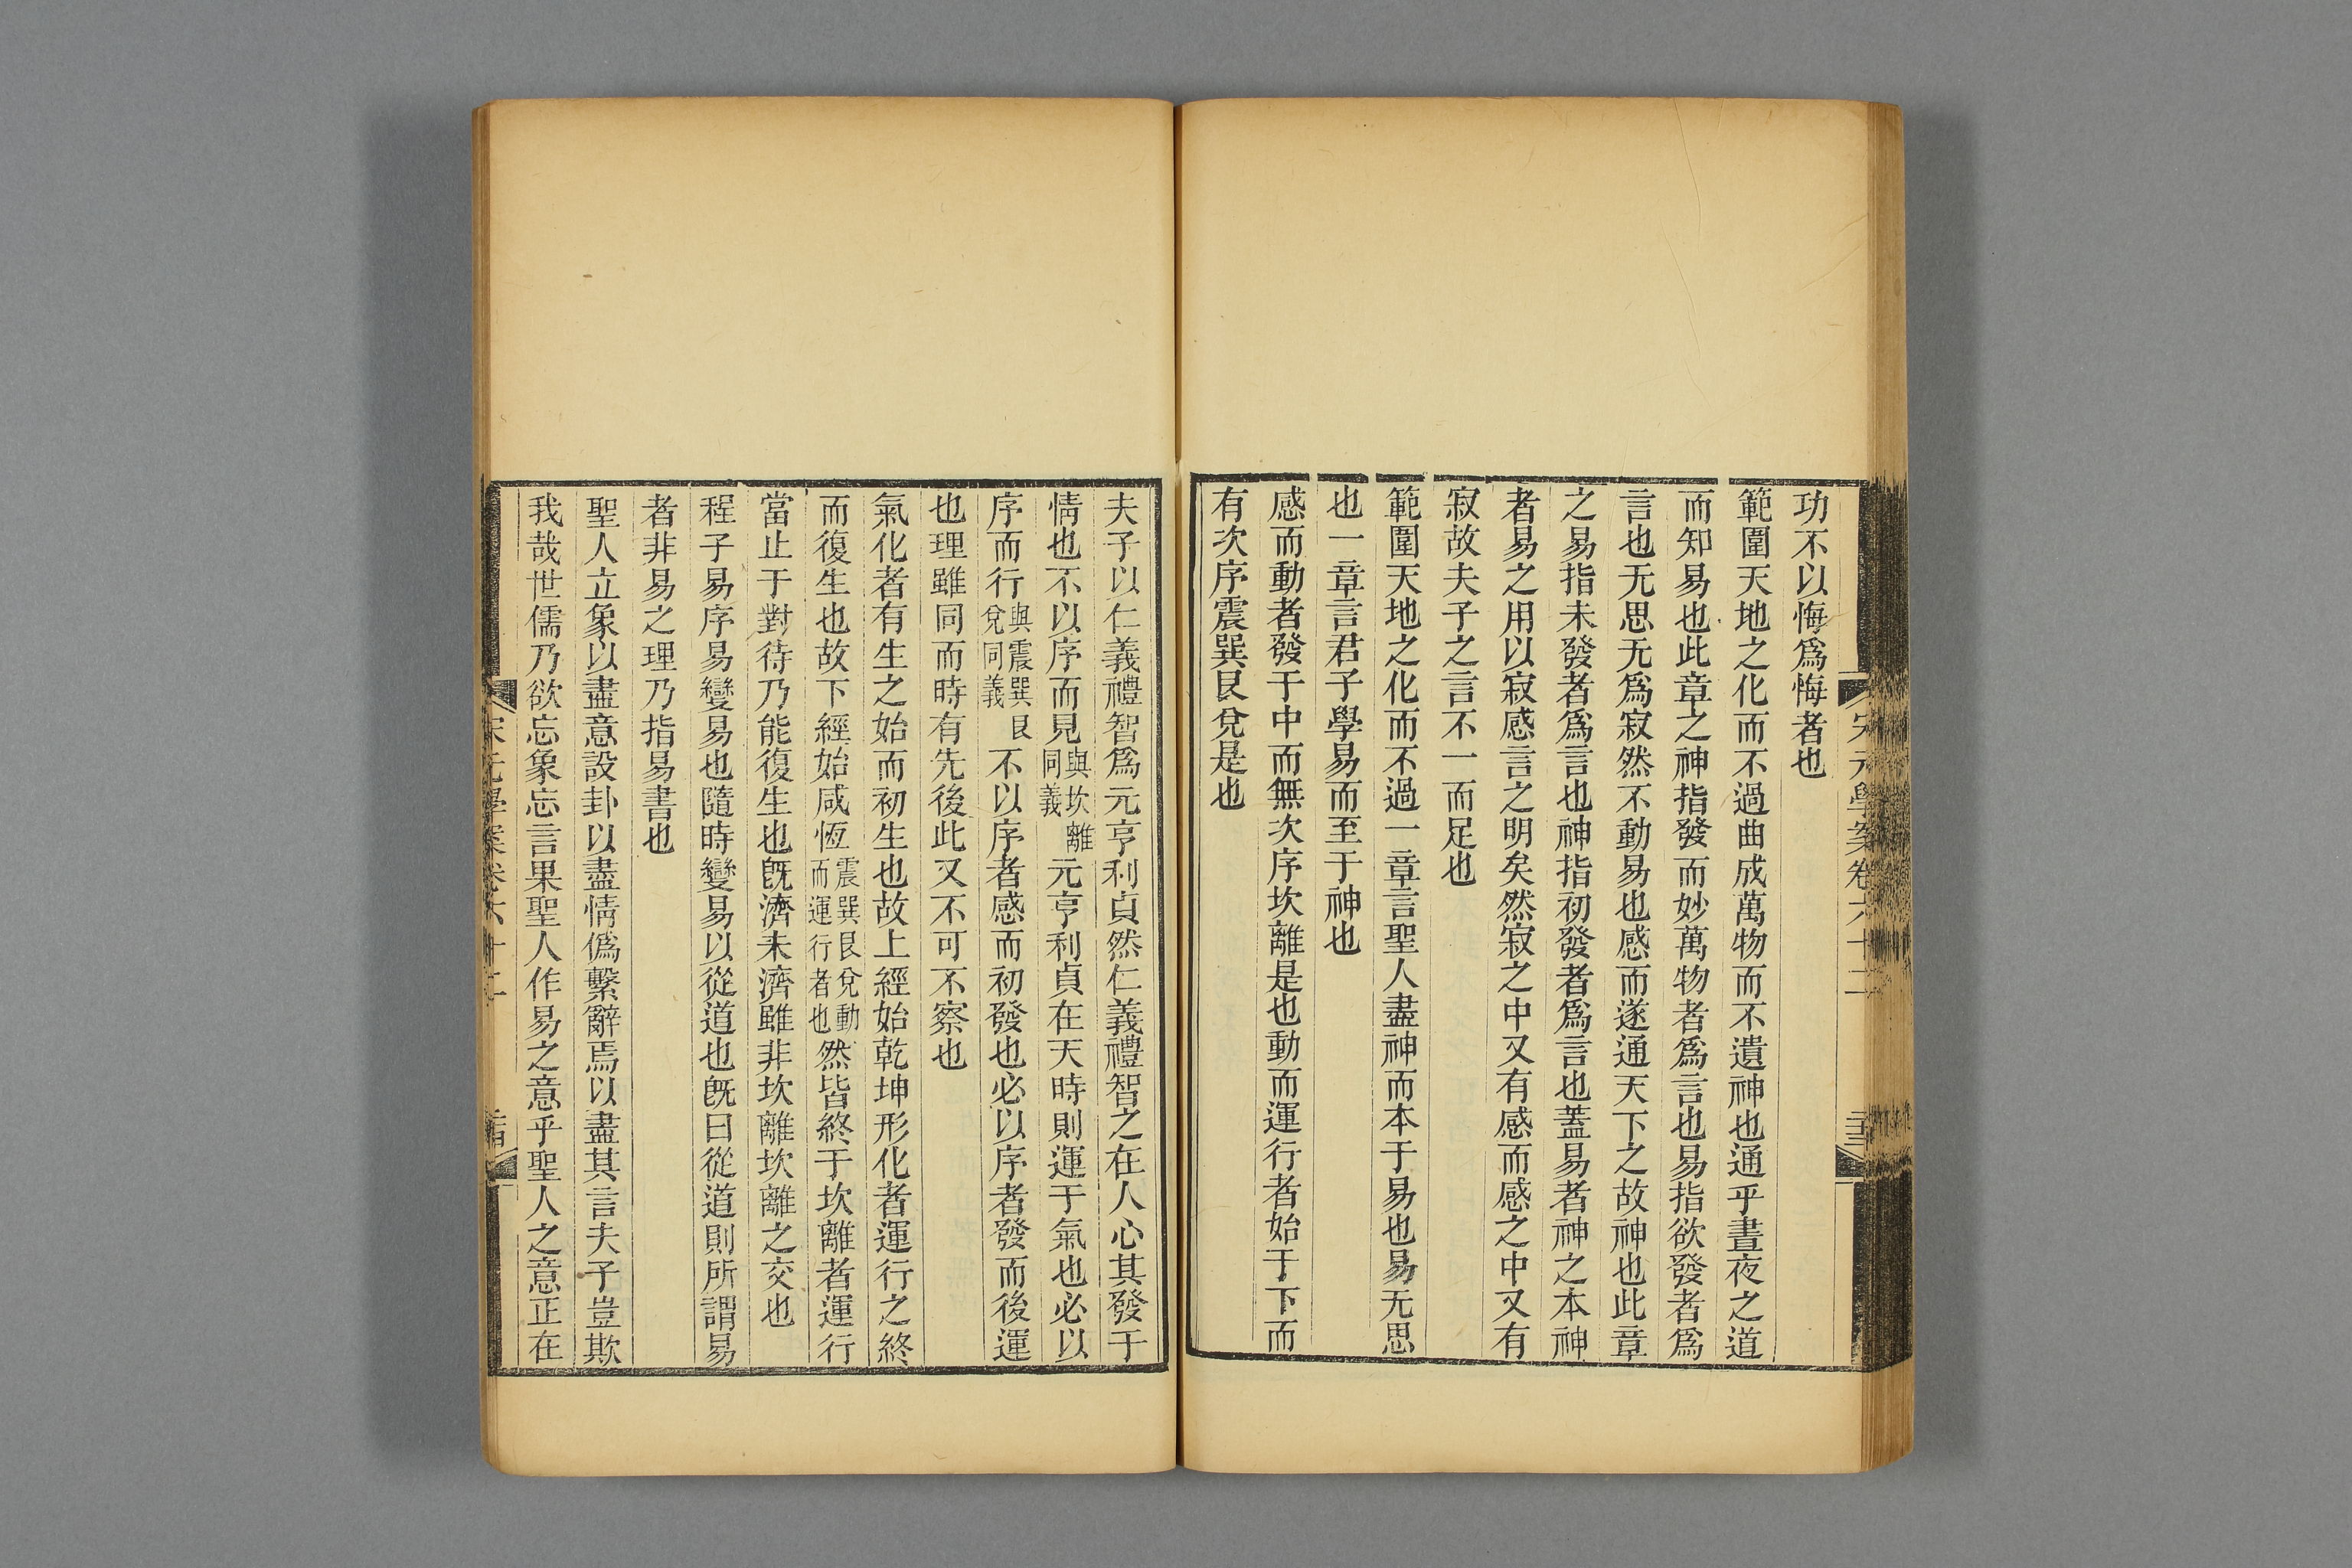 宋元學案卷六十二
功不以悔爲悔者也
範圍天地之化而不過曲成萬物而不遺神也通乎晝夜之道
而知易也此章之神指發而妙萬物者爲言也易指欲發者爲
言也无思无爲寂然不動易也感而遂通天下之故神也此章
之易指未發者爲言也神指初發者爲言也蓋易者神之本神
者易之用以寂感言之明矣然寂之中又有感而感之中又有
寂故夫子之言不一而足也
範圍天地之化而不過一章言聖人盡神而本于易也易无思
也一章言君子學易而至于神也
感而動者發于中而無次序坎離是也動而運行者始于下而
有次序震巽艮兌是也
夫子以仁義禮智爲元亨利貞然仁義禮智之在人心其發于
情也不以序而見與坎離同義元亨利貞在天時則運于氣也必以
序而行與震巽艮兌同義不以序者感而初發也必以序者發而後運
也理雖同而時有先後此又不可不察也
氣化者有生之始而初生也故上經始乾坤形化者運行之終
而復生也故下經始咸恆震巽艮兌動而運行者也然皆終于坎離者運行
當止于對待乃能復生也旣濟未濟雖非坎離坎離之交也
程子易序易變易也隨時變易以從道也旣曰從道則所謂易
者非易之理乃指易書也
聖人立象以盡意設卦以盡情僞繫辭焉以盡其言夫子豈欺
我哉世儒乃欲忘象忘言果聖人作易之意乎聖人之意正在
宋元學案卷六十二